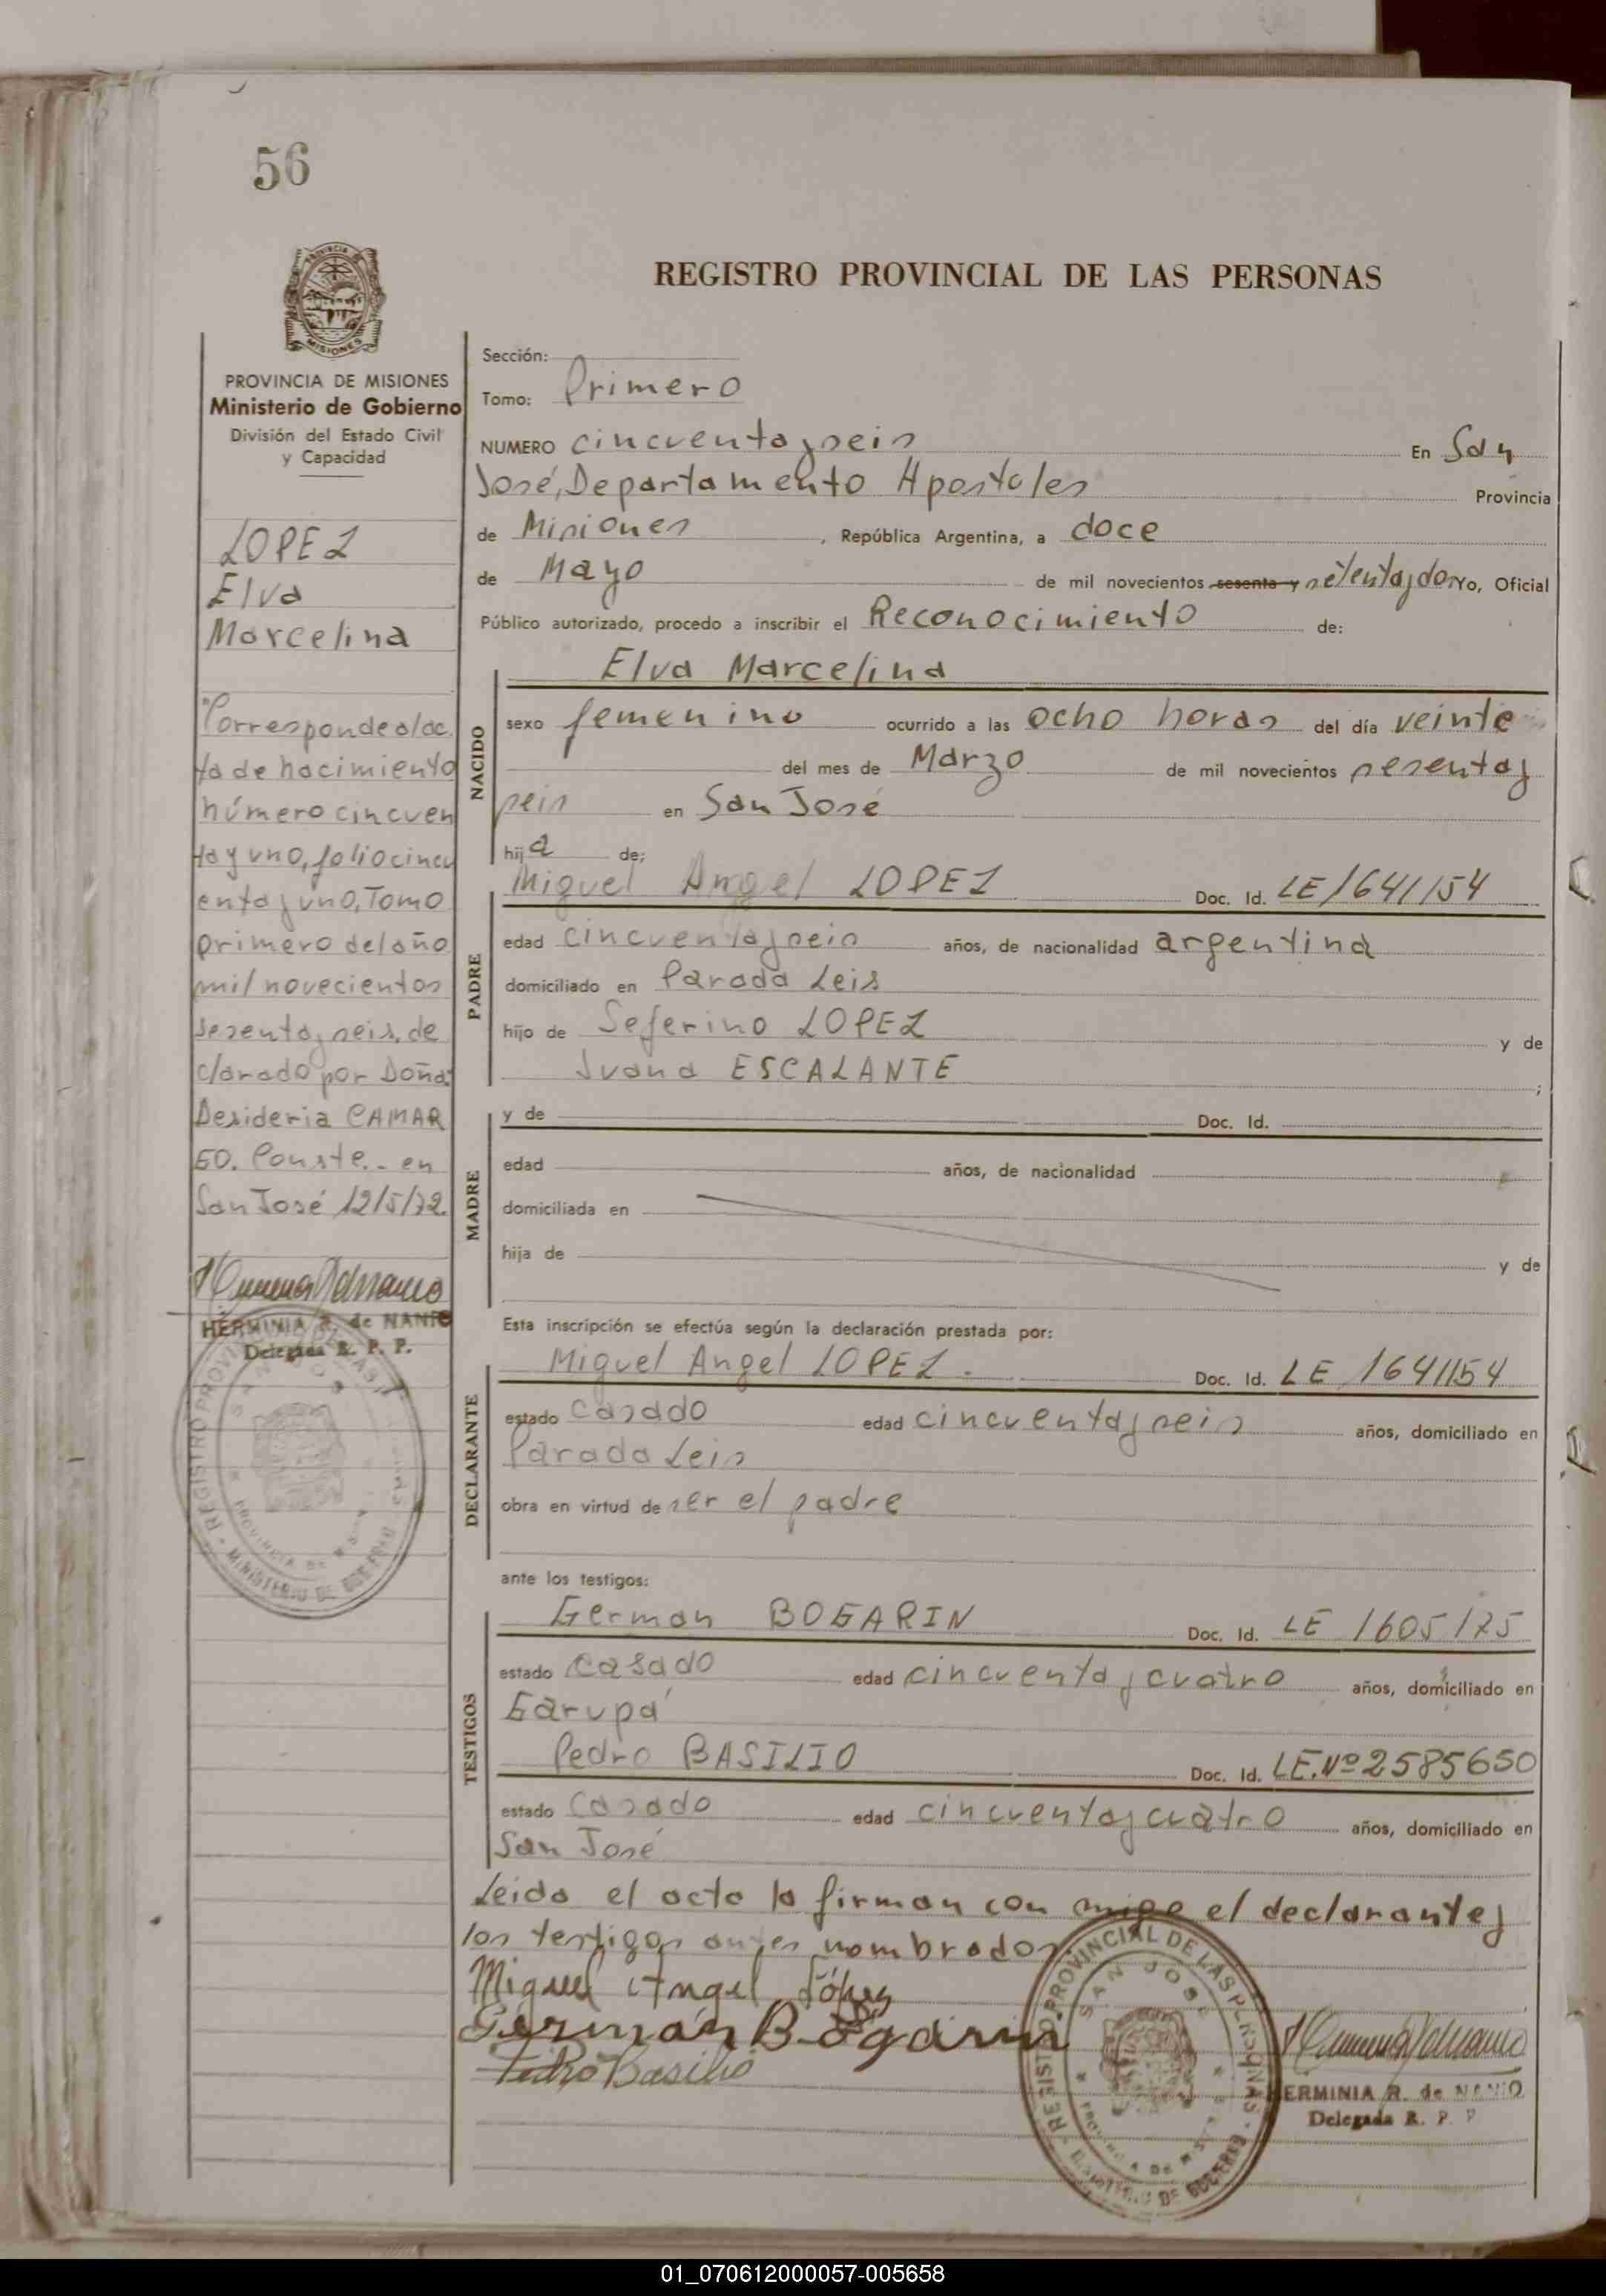 56
PROVINCIA DE MISIONES
Ministerio de Gobierno
División del Estado Civil
y Capacidad
LOPEZ
Elva
Marcelina
"Corresponde al ac
ta de nacimiento
número cincuen
ta y uno, folio cincu
enta y uno, Tomo
primero del año
mil novecientos
sesenta y seis, de
clarado por Doña:
Desideria CAMAR
GO. Conste.- en
San José 12/5/72.
HERMINIA R. de NANIO
Delegada R. P. P.
REGISTRO PROVINCIAL DE LAS PERSONAS
Sección:
Tomo: Primero
NUMERO cincuenta y seis En San
José, Departamento Apostoles Provincia
de Misiones, República Argentina, a doce
de Mayo de mil novecientos sesenta y setenta y dos Yo, Oficial
Público autorizado, procedo a inscribir el Reconocimiento de:
NACIDO
Elva Marcelina
sexo femenino ocurrido a las ocho horas del día veinte
del mes de Marzo de mil novecientos sesenta y
seis en San José
hija de;
PADRE
Miguel Angel LOPEZ Doc. Id. LE 1641154
edad cincuenta y seis años, de nacionalidad argentina
domiciliado en Parada Leis
hijo de Seferino LOPEZ y de
Juana ESCALANTE ;
MADRE
y de Doc. Id.
edad años, de nacionalidad
domiciliada en
hija de y de
Esta inscripción se efectúa según la declaración prestada por:
DECLARANTE
Miguel Angel LOPEZ. Doc. Id. LE 1641154
estado Casado edad cincuenta y seis años, domiciliado en
Parada Leis
obra en virtud de ser el padre
ante los testigos:
TESTIGOS
German BOGARIN Doc. Id. LE 1605175
estado Casado edad cincuenta y cuatro años, domiciliado en
Garupá
Pedro BASILIO Doc. Id. LE.Nº 2585650
estado Casado edad cincuenta y cuatro años, domiciliado en
San José
Leida el acta la firman con migo el declarante y
los testigos antes nombrados
Miguel Angel López
Germán Bogarin
Pedro Basilio
REGISTRO PROVINCIAL DE LAS PERSONAS
SAN JOSE
PROVINCIA DE MISIONES
MINISTERIO DE GOBIERNO
HERMINIA R. de NANIO
Delegada R. P. P
01_070612000057-005658